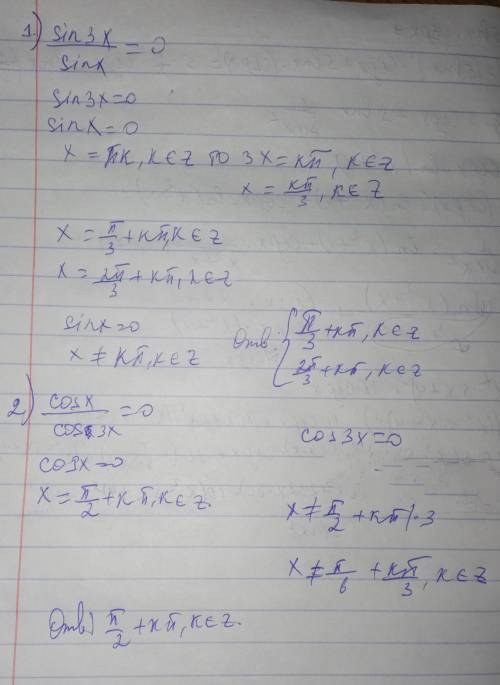 1) sin3x/sinx = 0
sin3x=0
sinx=0
x = πk, k∈z то 3x = kπ, k∈z
x = kπ/3, k∈z
x = π/3 + kπ, k∈z
x = 2π/3 + kπ, k∈z
sinx=0
x ≠ kπ, k∈z
Отв: { π/3 + kπ, k∈z
2π/3 + kπ, k∈z
2) cosx/cos3x = 0
cosx=0
x = π/2 + kπ, k∈z.
cos3x=0
x ≠ π/2 + kπ |·3
x ≠ π/6 + kπ/3, k∈z
Отв) π/2 + kπ, k∈z.